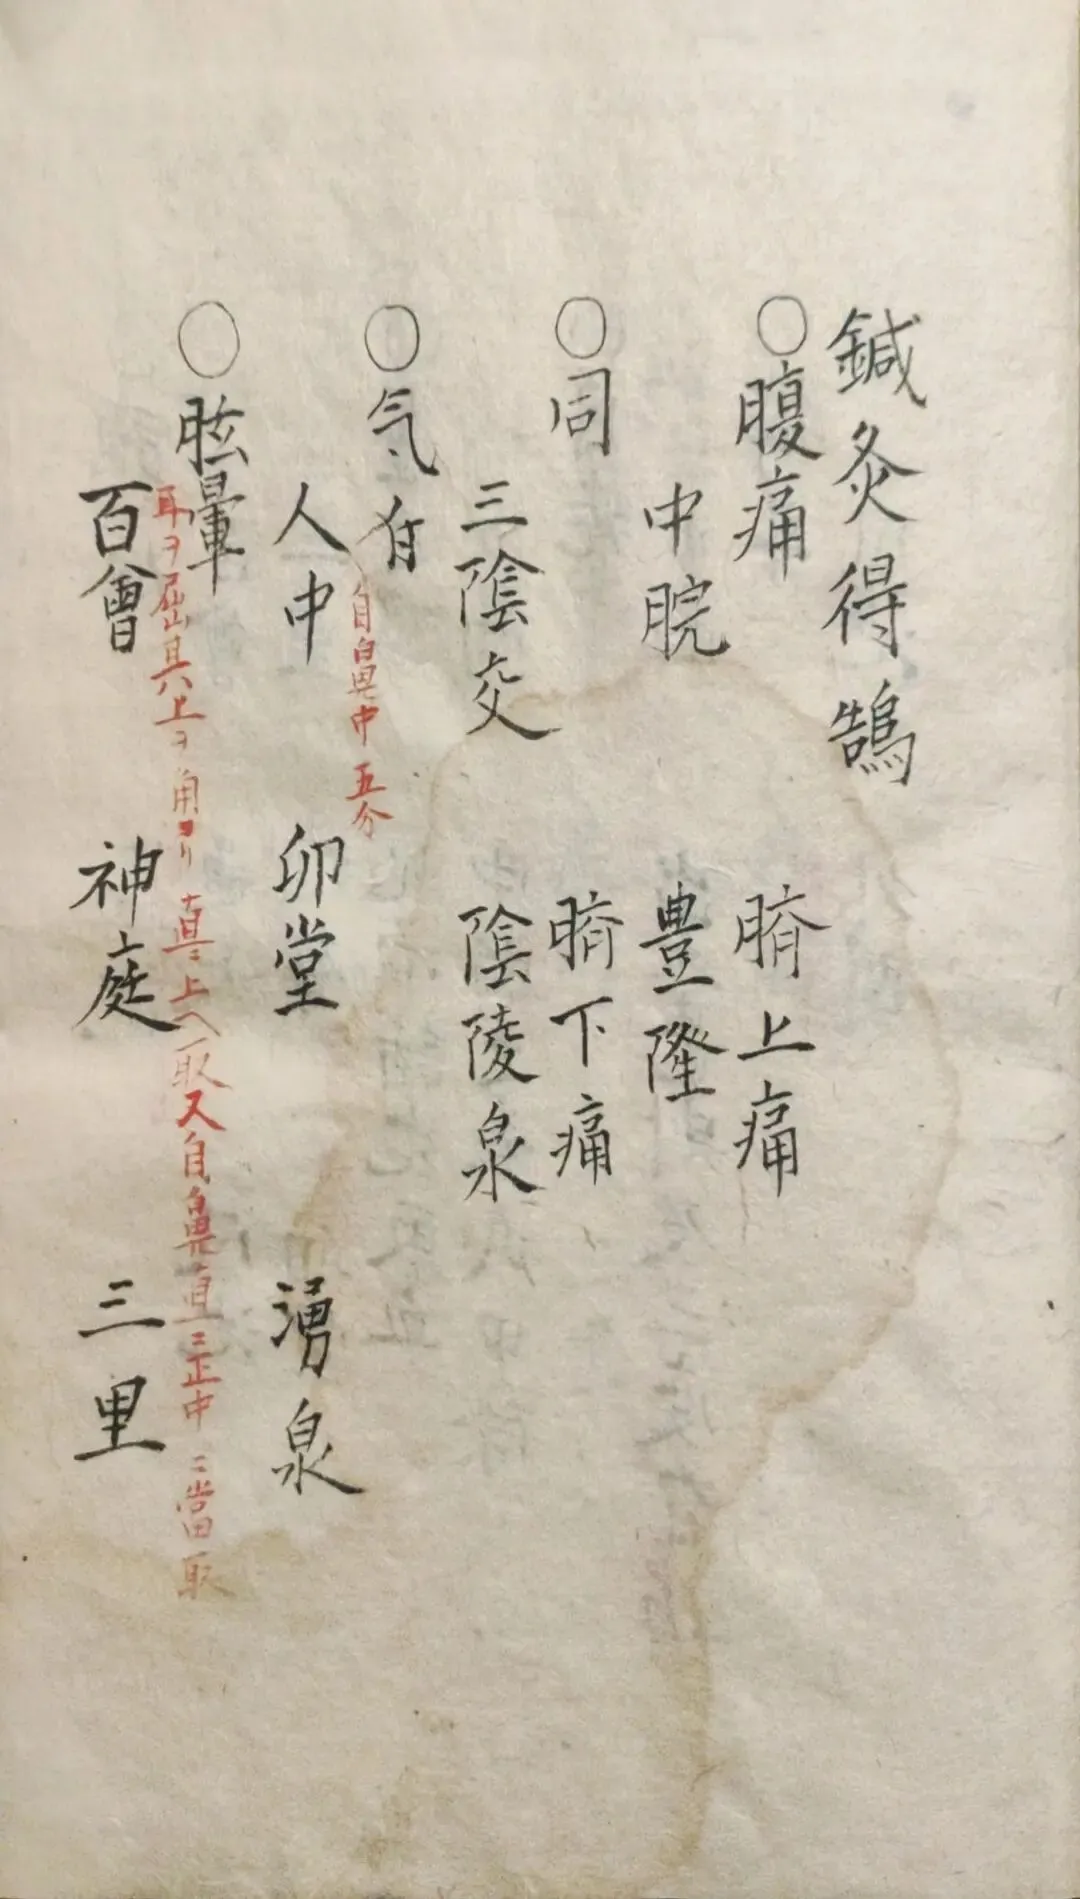 鍼灸得鵠
〇腹痛 臍上痛
中脘 豊隆
〇同 臍下痛
三陰交 陰陵泉
〇气付
自鼻中五分
人中 印堂 湧泉
〇眩暈
耳ヲ屈其上ヲ角ヨリ真上ヘ取又自鼻直ニ正中ニ當取
百會 神庭 三里